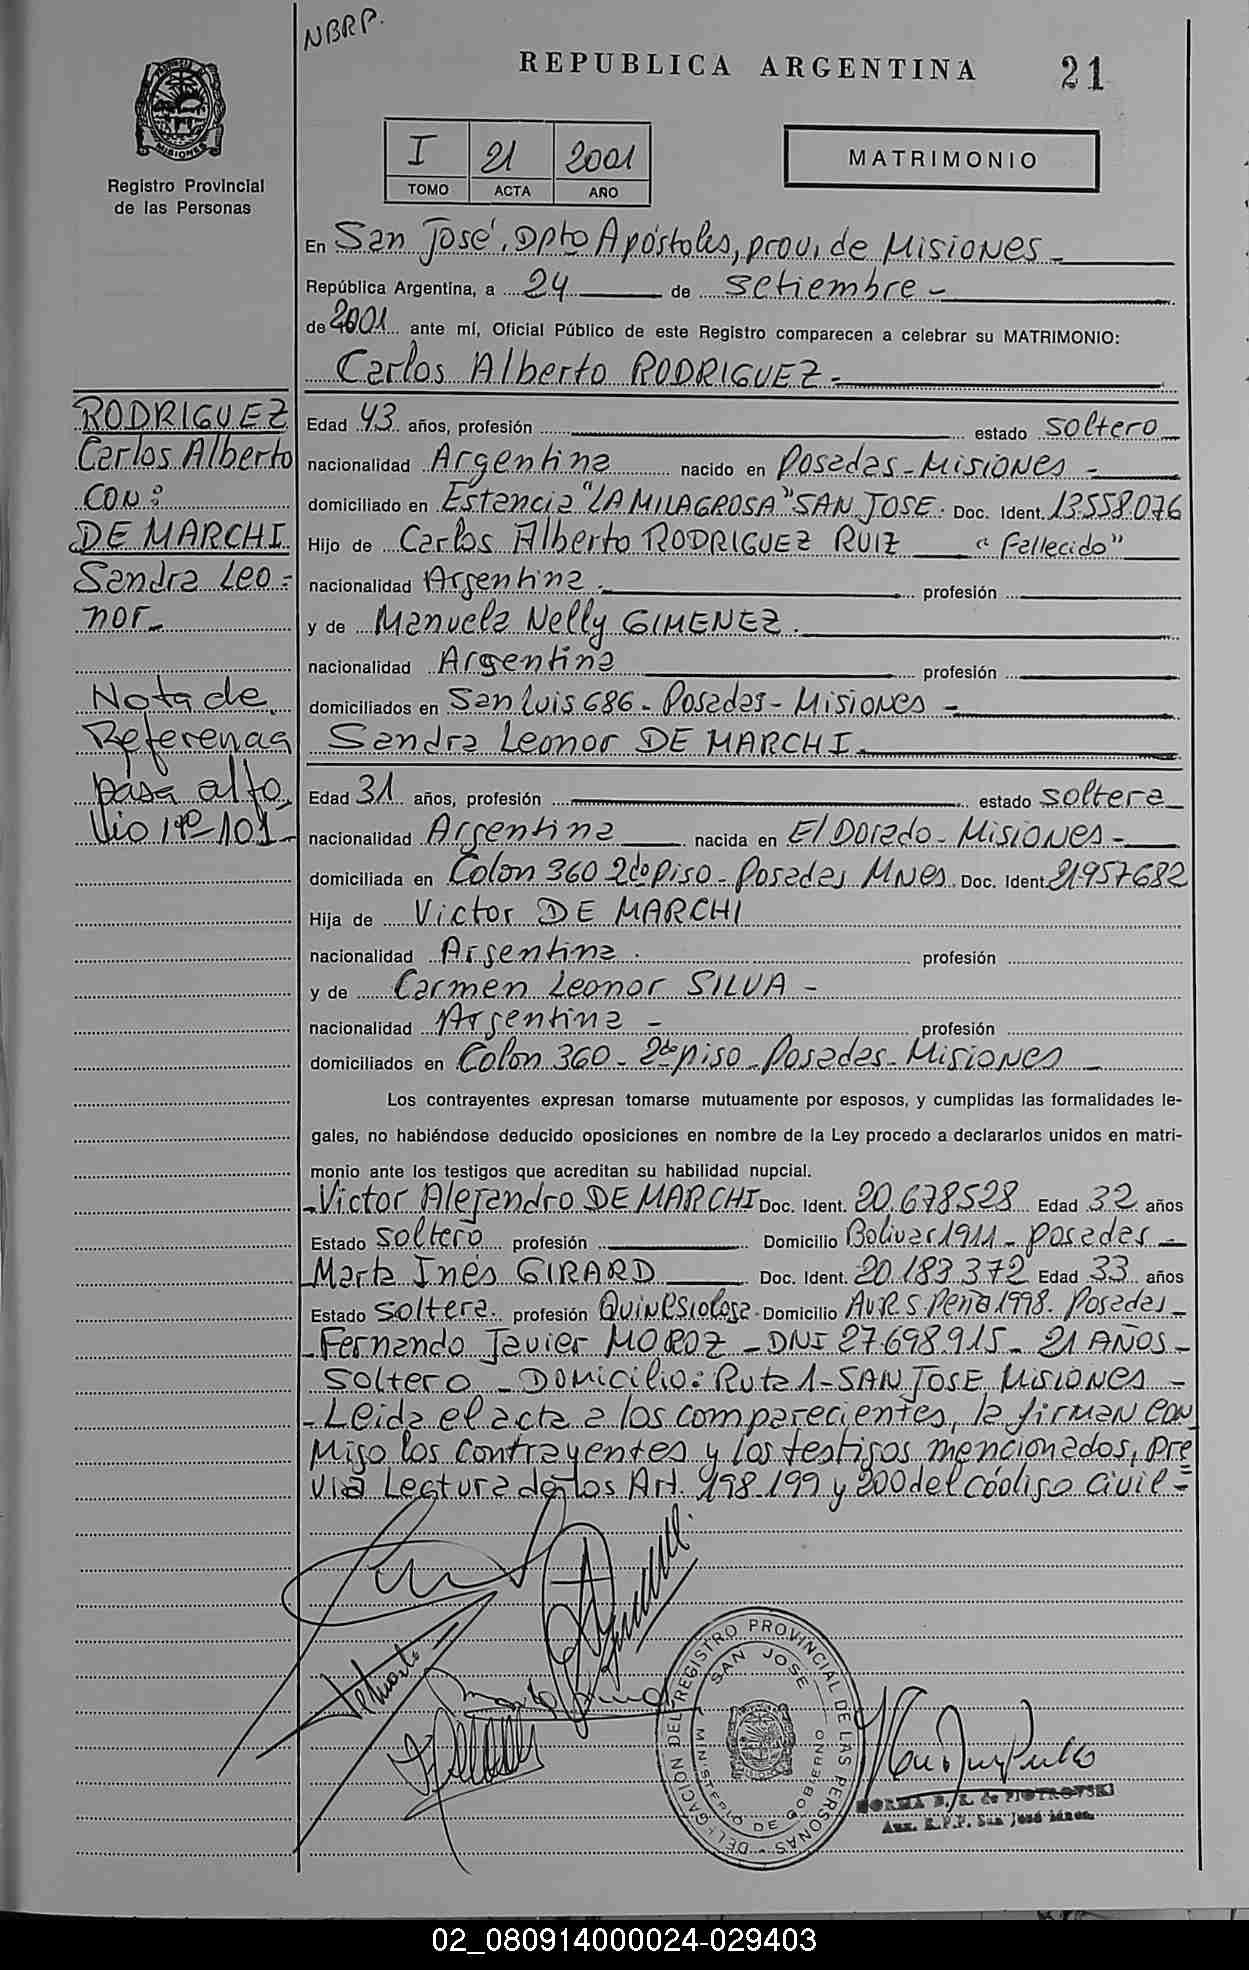 NBRP.
REPUBLICA ARGENTINA 21
MISIONES
Registro Provincial
de las Personas
I 21 2001
TOMO ACTA AÑO
MATRIMONIO
En San José, Dpto Apóstoles, prov. de Misiones
República Argentina, a 24 de setiembre
de 2001 ante mí, Oficial Público de este Registro comparecen a celebrar su MATRIMONIO:
Carlos Alberto RODRIGUEZ
RODRIGUEZ
Carlos Alberto
CON:
DE MARCHI
Sandra Leo-
nor
Nota de
Referencia
pasa al fo
lio Nº 101
Edad 43 años, profesión estado soltero
nacionalidad Argentina nacido en Posadas - Misiones -
domiciliado en Estancia "LA MILAGROSA" SAN JOSE. Doc. Ident. 13.558.076
Hijo de Carlos Alberto RODRIGUEZ RUIZ "Fallecido"
nacionalidad Argentina. profesión
y de Manuela Nelly GIMENEZ.
nacionalidad Argentina profesión
domiciliados en San Luis 686 - Posadas - Misiones -
Sandra Leonor DE MARCHI
Edad 31 años, profesión estado soltera
nacionalidad Argentina nacida en El Dorado - Misiones -
domiciliada en Colon 360 2do piso - Posadas Mnes. Doc. Ident. 21.957.682
Hija de Victor DE MARCHI
nacionalidad Argentina. profesión
y de Carmen Leonor SILVA -
nacionalidad Argentina - profesión
domiciliados en Colon 360 - 2do piso - Posadas - Misiones
Los contrayentes expresan tomarse mutuamente por esposos, y cumplidas las formalidades le-
gales, no habiéndose deducido oposiciones en nombre de la Ley procedo a declararlos unidos en matri-
monio ante los testigos que acreditan su habilidad nupcial.
- Victor Alejandro DE MARCHI Doc. Ident. 20.678528 Edad 32 años
Estado soltero profesión Domicilio Bolivar 1911 - Posadas
Marta Inés GIRARD Doc. Ident. 20.183.372 Edad 33 años
Estado soltera. profesión Quinesiologa. Domicilio Av R.S. Peña 1998. Posadas -
- Fernando Javier MOROZ - DNI 27.698.915 - 21 AÑOS -
soltero - Domicilio: Ruta 1 - SAN JOSE Misiones -
- Leida el acta a los comparecientes, la firman con
migo los contrayentes y los testigos mencionados, pre
via Lectura de los Art. 198.199 y 200 del Código Civil =
DELEGACION DEL REGISTRO PROVINCIAL DE LAS PERSONAS
SAN JOSE
MINISTERIO DE GOBIERNO
NORMA B. R. de PIOTROVSKI
Aux. R.P.P. San José Mnes.
02_080914000024-029403